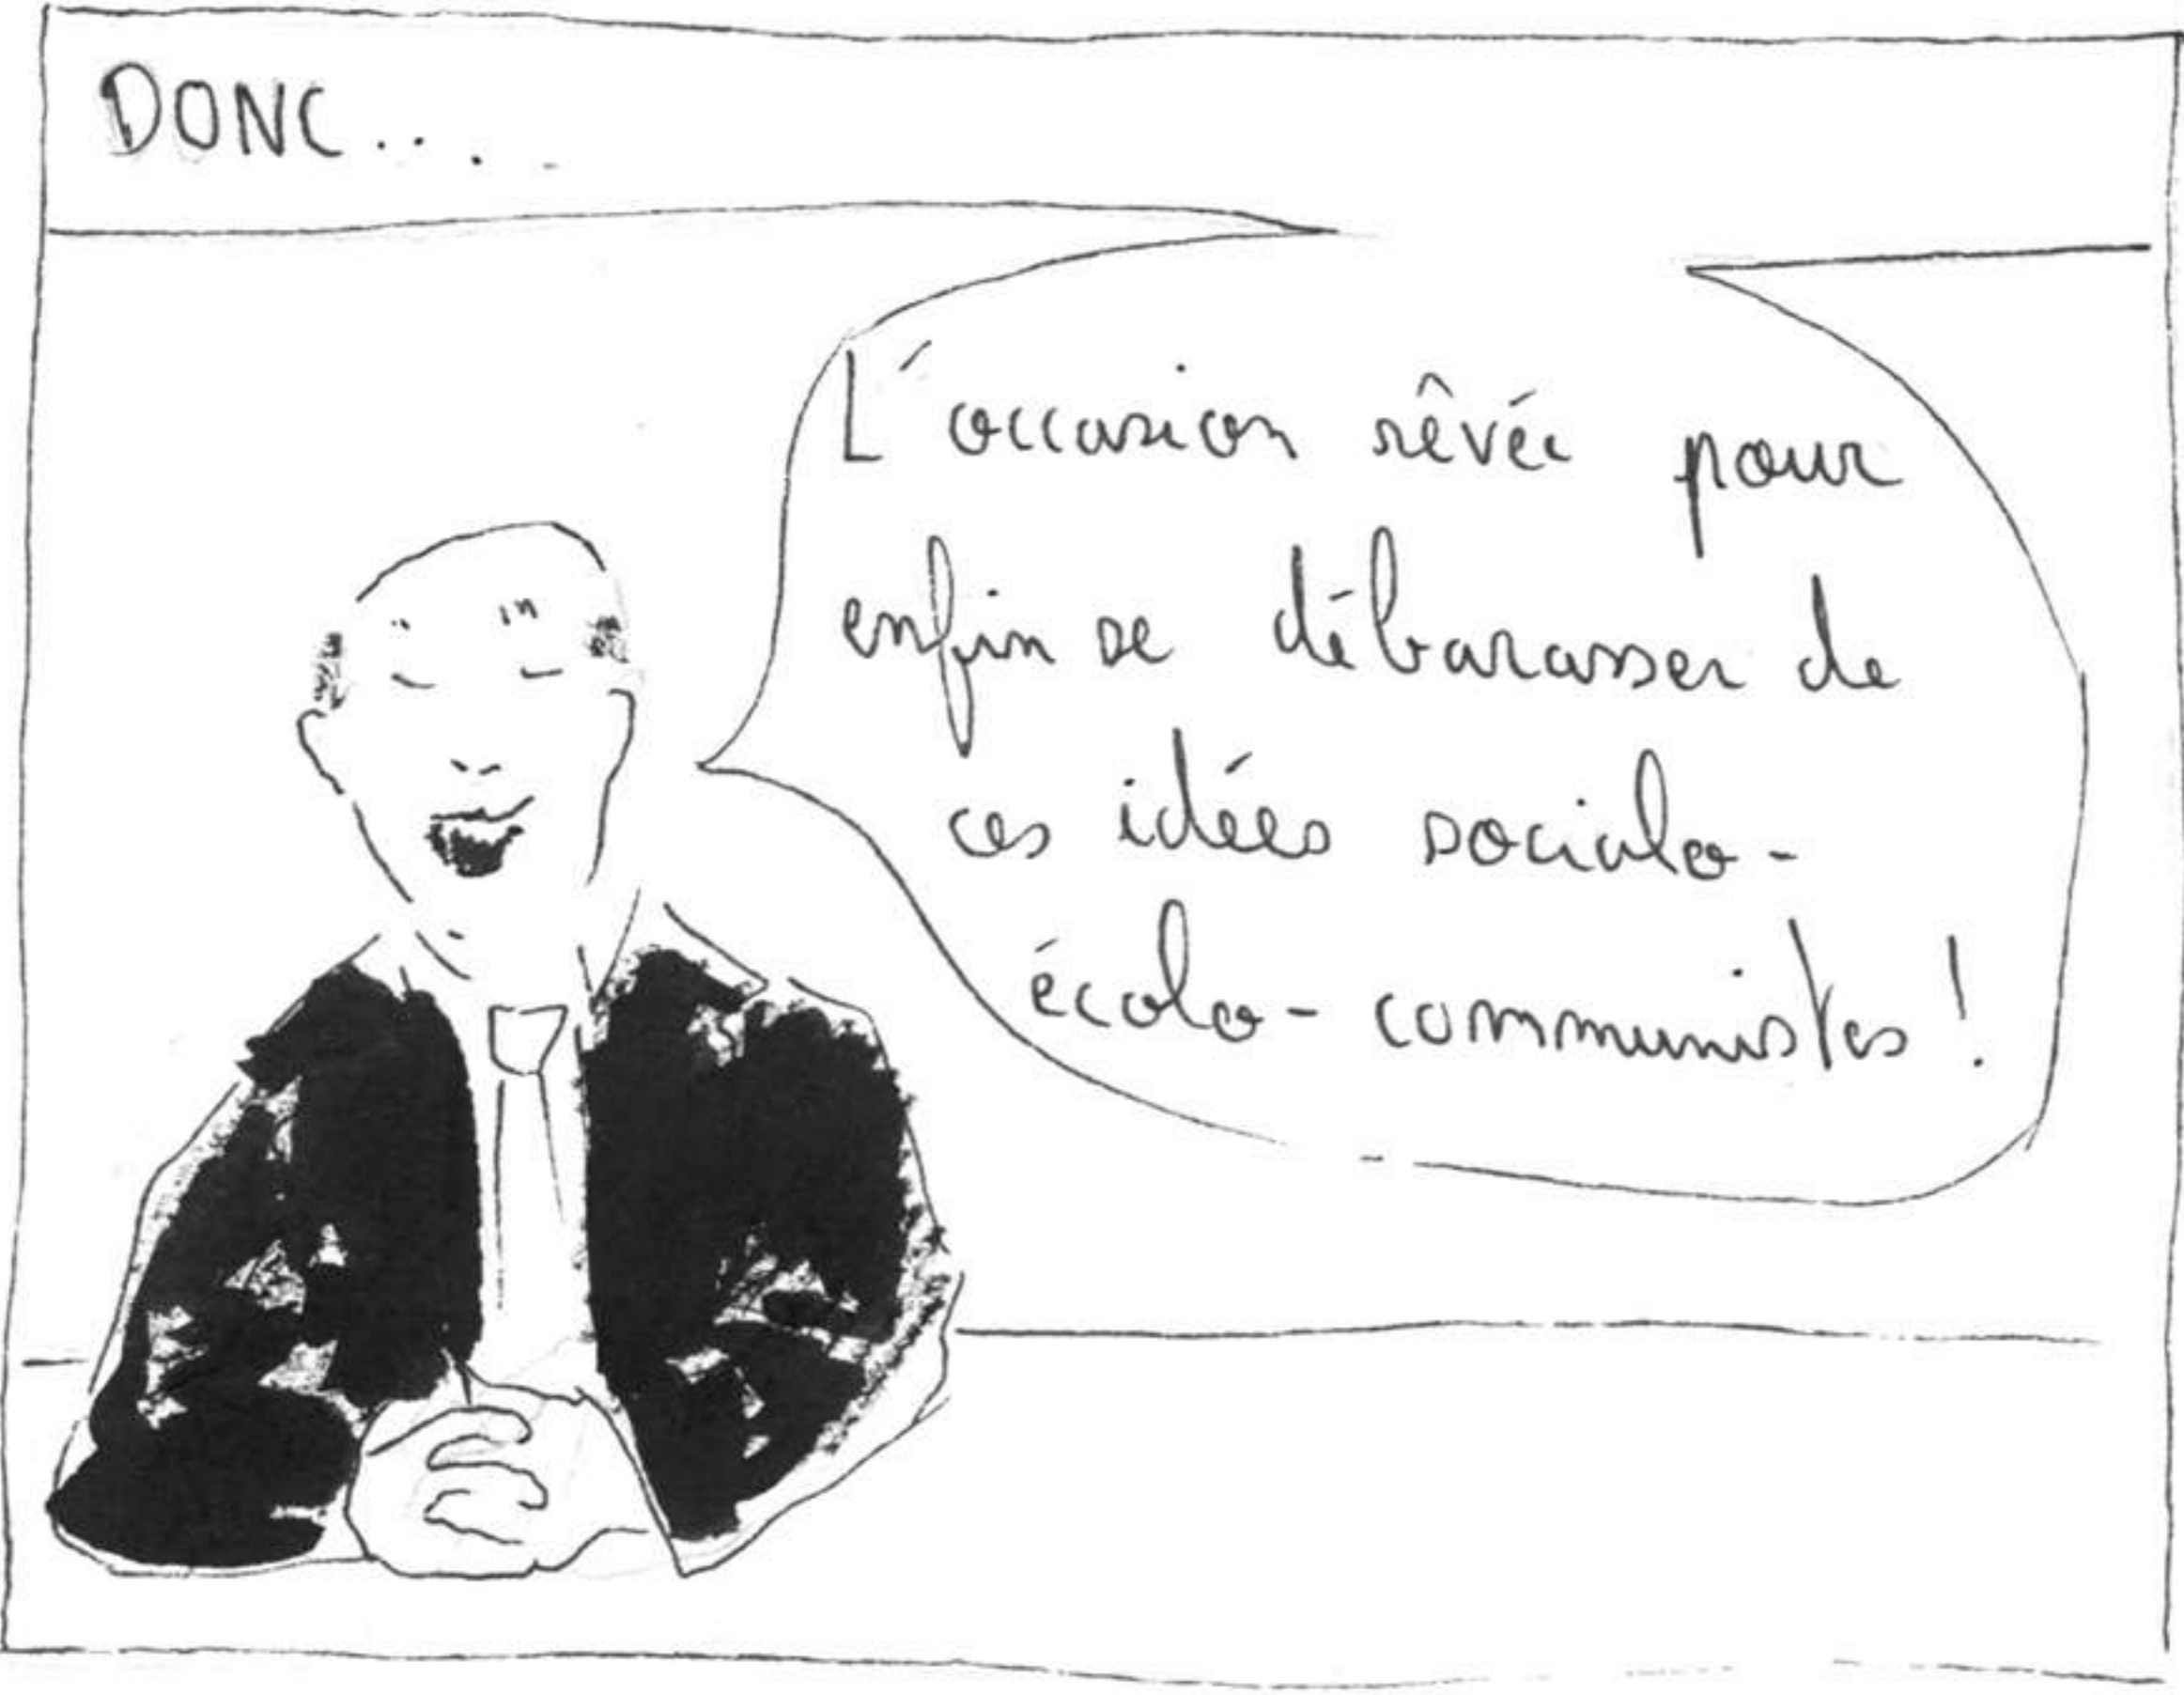 DONC...
L'occasion rêvée pour
enfin se débarasser de
ces idées socialo-
écolo-communistes !